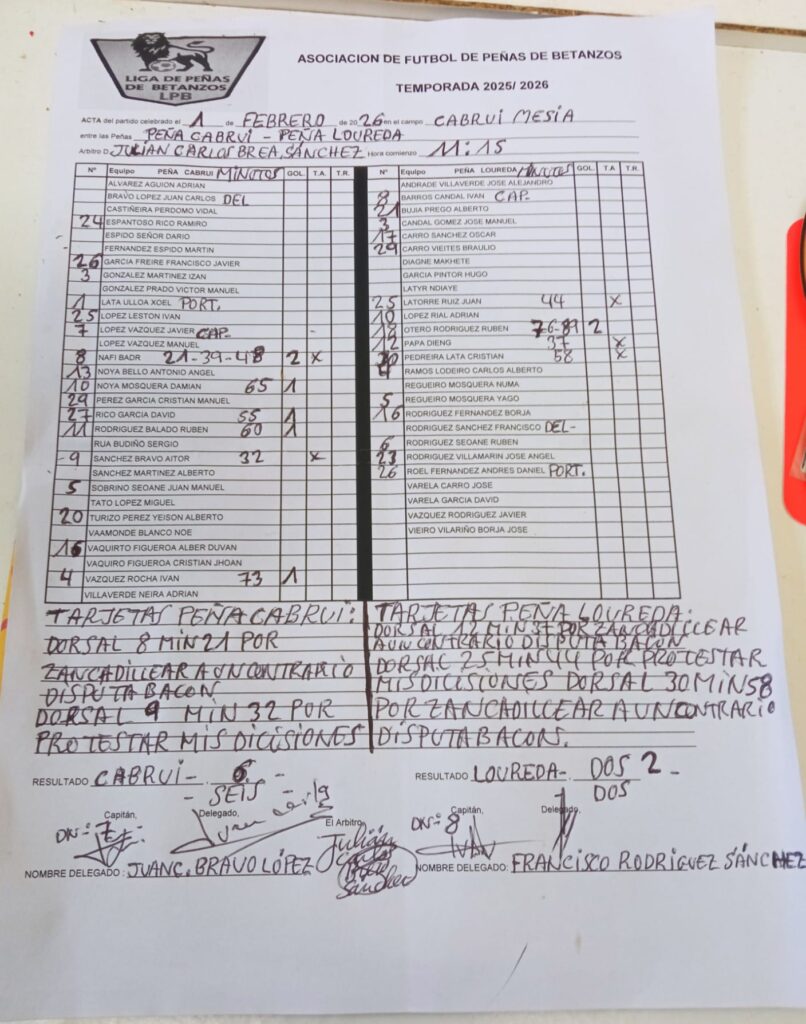 LIGA DE PEÑAS
DE BETANZOS
LPB
ASOCIACION DE FUTBOL DE PEÑAS DE BETANZOS
TEMPORADA 2025/ 2026
ACTA del partido celebrado el 1 de FEBRERO de 2026 en el campo CABRUI MESIA
entre las Peñas PEÑA CABRUI - PEÑA LOUREDA
Arbitro D. JULIAN CARLOS BREA SÁNCHEZ Hora comienzo 11:15
Nº Equipo PEÑA CABRUI MINUTOS GOL T.A. T.R.
ALVAREZ AGUION ADRIAN
BRAVO LOPEZ JUAN CARLOS DEL
CASTIÑEIRA PERDOMO VIDAL
24 ESPANTOSO RICO RAMIRO
ESPIDO SEÑOR DARIO
FERNANDEZ ESPIDO MARTIN
26 GARCIA FREIRE FRANCISCO JAVIER
3 GONZALEZ MARTINEZ IZAN
GONZALEZ PRADO VICTOR MANUEL
1 LATA ULLOA XOEL PORT.
25 LOPEZ LESTON IVAN
7 LOPEZ VAZQUEZ JAVIER CAP- -
LOPEZ VAZQUEZ MANUEL
8 NAFI BADR 21-39-48 2 X
13 NOYA BELLO ANTONIO ANGEL
10 NOYA MOSQUERA DAMIAN 65 1
29 PEREZ GARCIA CRISTIAN MANUEL
27 RICO GARCIA DAVID 55 1
11 RODRIGUEZ BALADO RUBEN 60 1
RUA BUDIÑO SERGIO
-9 SANCHEZ BRAVO AITOR 32 X
SANCHEZ MARTINEZ ALBERTO
5 SOBRINO SEOANE JUAN MANUEL
TATO LOPEZ MIGUEL
20 TURIZO PEREZ YEISON ALBERTO
VAAMONDE BLANCO NOE
16 VAQUIRTO FIGUEROA ALBER DUVAN
VAQUIRO FIGUEROA CRISTIAN JHOAN
4 VAZQUEZ ROCHA IVAN 73 1
VILLAVERDE NEIRA ADRIAN
Nº Equipo PEÑA LOUREDA MINUTOS GOL T.A T.R.
ANDRADE VILLAVERDE JOSE ALEJANDRO
8 BARROS CANDAL IVAN CAP-
21 BUJIA PREGO ALBERTO
3 CANDAL GOMEZ JOSE MANUEL
17 CARRO SANCHEZ OSCAR
29 CARRO VIEITES BRAULIO
DIAGNE MAKHETE
GARCIA PINTOR HUGO
LATYR NDIAYE
25 LATORRE RUIZ JUAN 44 X
10 LOPEZ RIAL ADRIAN
OTERO RODRIGUEZ RUBEN 76-89 2
12 PAPA DIENG 37 X
30 PEDREIRA LATA CRISTIAN 58 X
RAMOS LODEIRO CARLOS ALBERTO
REGUEIRO MOSQUERA NUMA
5 REGUEIRO MOSQUERA YAGO
16 RODRIGUEZ FERNANDEZ BORJA
RODRIGUEZ SANCHEZ FRANCISCO DEL-
6 RODRIGUEZ SEOANE RUBEN
23 RODRIGUEZ VILLAMARIN JOSE ANGEL
26 ROEL FERNANDEZ ANDRES DANIEL PORT.
VARELA CARRO JOSE
VARELA GARCIA DAVID
VAZQUEZ RODRIGUEZ JAVIER
VIEIRO VILARIÑO BORJA JOSE
TARJETAS PEÑA CABRUI:
DORSAL 8 MIN 21 POR
ZANCADILLEAR A UN CONTRARIO
DISPUTA BACON
DORSAL 9 MIN 32 POR
PROTESTAR MIS DICISIONES
TARJETAS PEÑA LOUREDA:
DORSAL 12 MIN 37 POR ZANCADILLEAR
A UN CONTRARIO DISPUTA BACON
DORSAL 25 MIN 44 POR PROTESTAR
MIS DICISIONES DORSAL 30 MIN 58
POR ZANCADILLEAR A UN CONTRARIO
DISPUTA BACON.
RESULTADO CABRUI- 6 -
- SEIS -
RESULTADO LOUREDA- DOS 2 -
DOS
Capitán, Delegado, El Arbitro,
DN-: 7
Julián
Carlos
Sánchez
Capitán, Delegado,
DN-: 8
NOMBRE DELEGADO : JUAN C. BRAVO LÓPEZ
NOMBRE DELEGADO: FRANCISCO RODRIGUEZ SÁNCHEZ